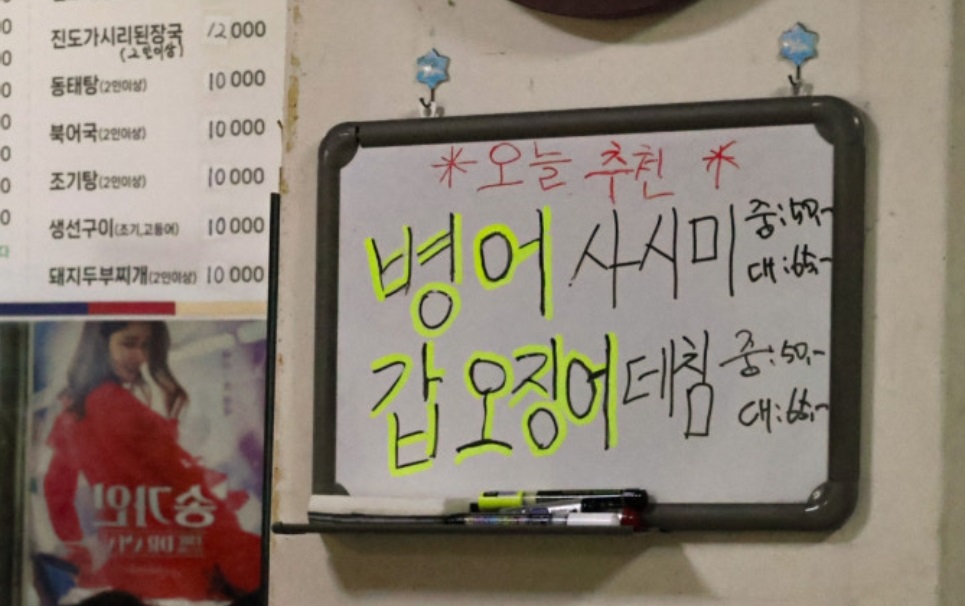 진도가시리된장국 12000
(2인이상)
동태탕(2인이상) 10000
북어국(2인이상) 10000
조기탕(2인이상) 10000
생선구이(조기,고등어) 10000
돼지두부찌개(2인이상) 10000
*오늘 추천 *
병어 사시미 중:50,-
대:65,-
갑오징어데침 중:50,-
대:65,-
송가인